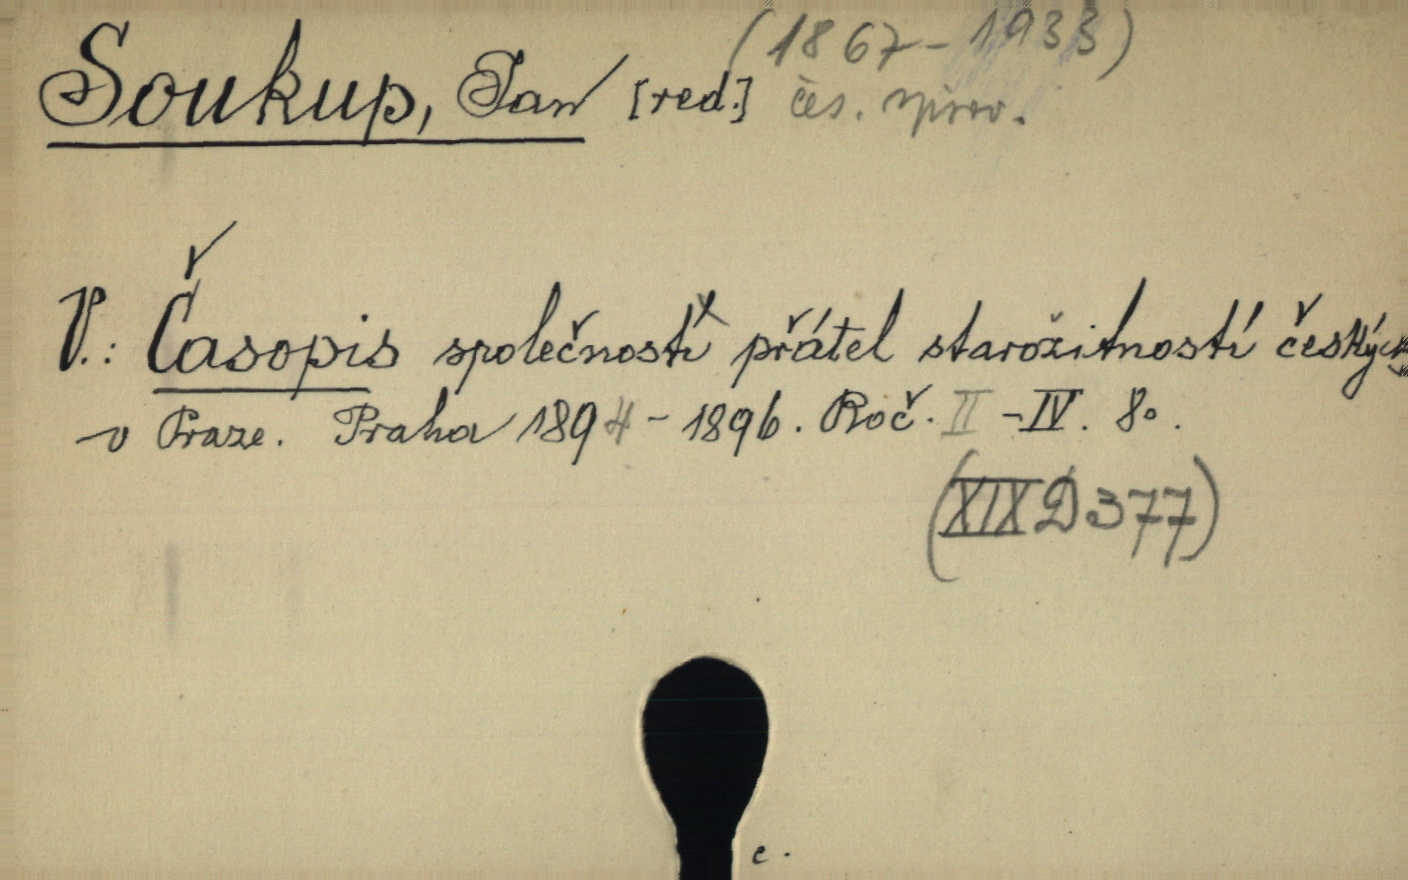 (1867-1933)
Soukup, Jan [red.] čes. spisov.
V.: Časopis společnosti přátel starožitností českých
v Praze. Praha 1894-1896. Roč. II-IV. 8°.
(XIX D 377)
c.